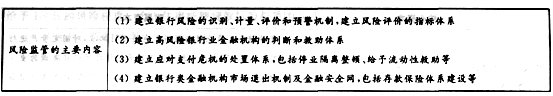 风险监管的主要内容
(1) 建立银行风险的识别、计量、评价和预警机制,建立风险评价的指标体系
(2) 建立高风险银行业金融机构的判断和救助体系
(3) 建立应对支付危机的处置体系,包括停业隔离整顿、给予流动性救助等
(4) 建立银行类金融机构市场退出机制及金融安全网,包括存款保险体系建设等